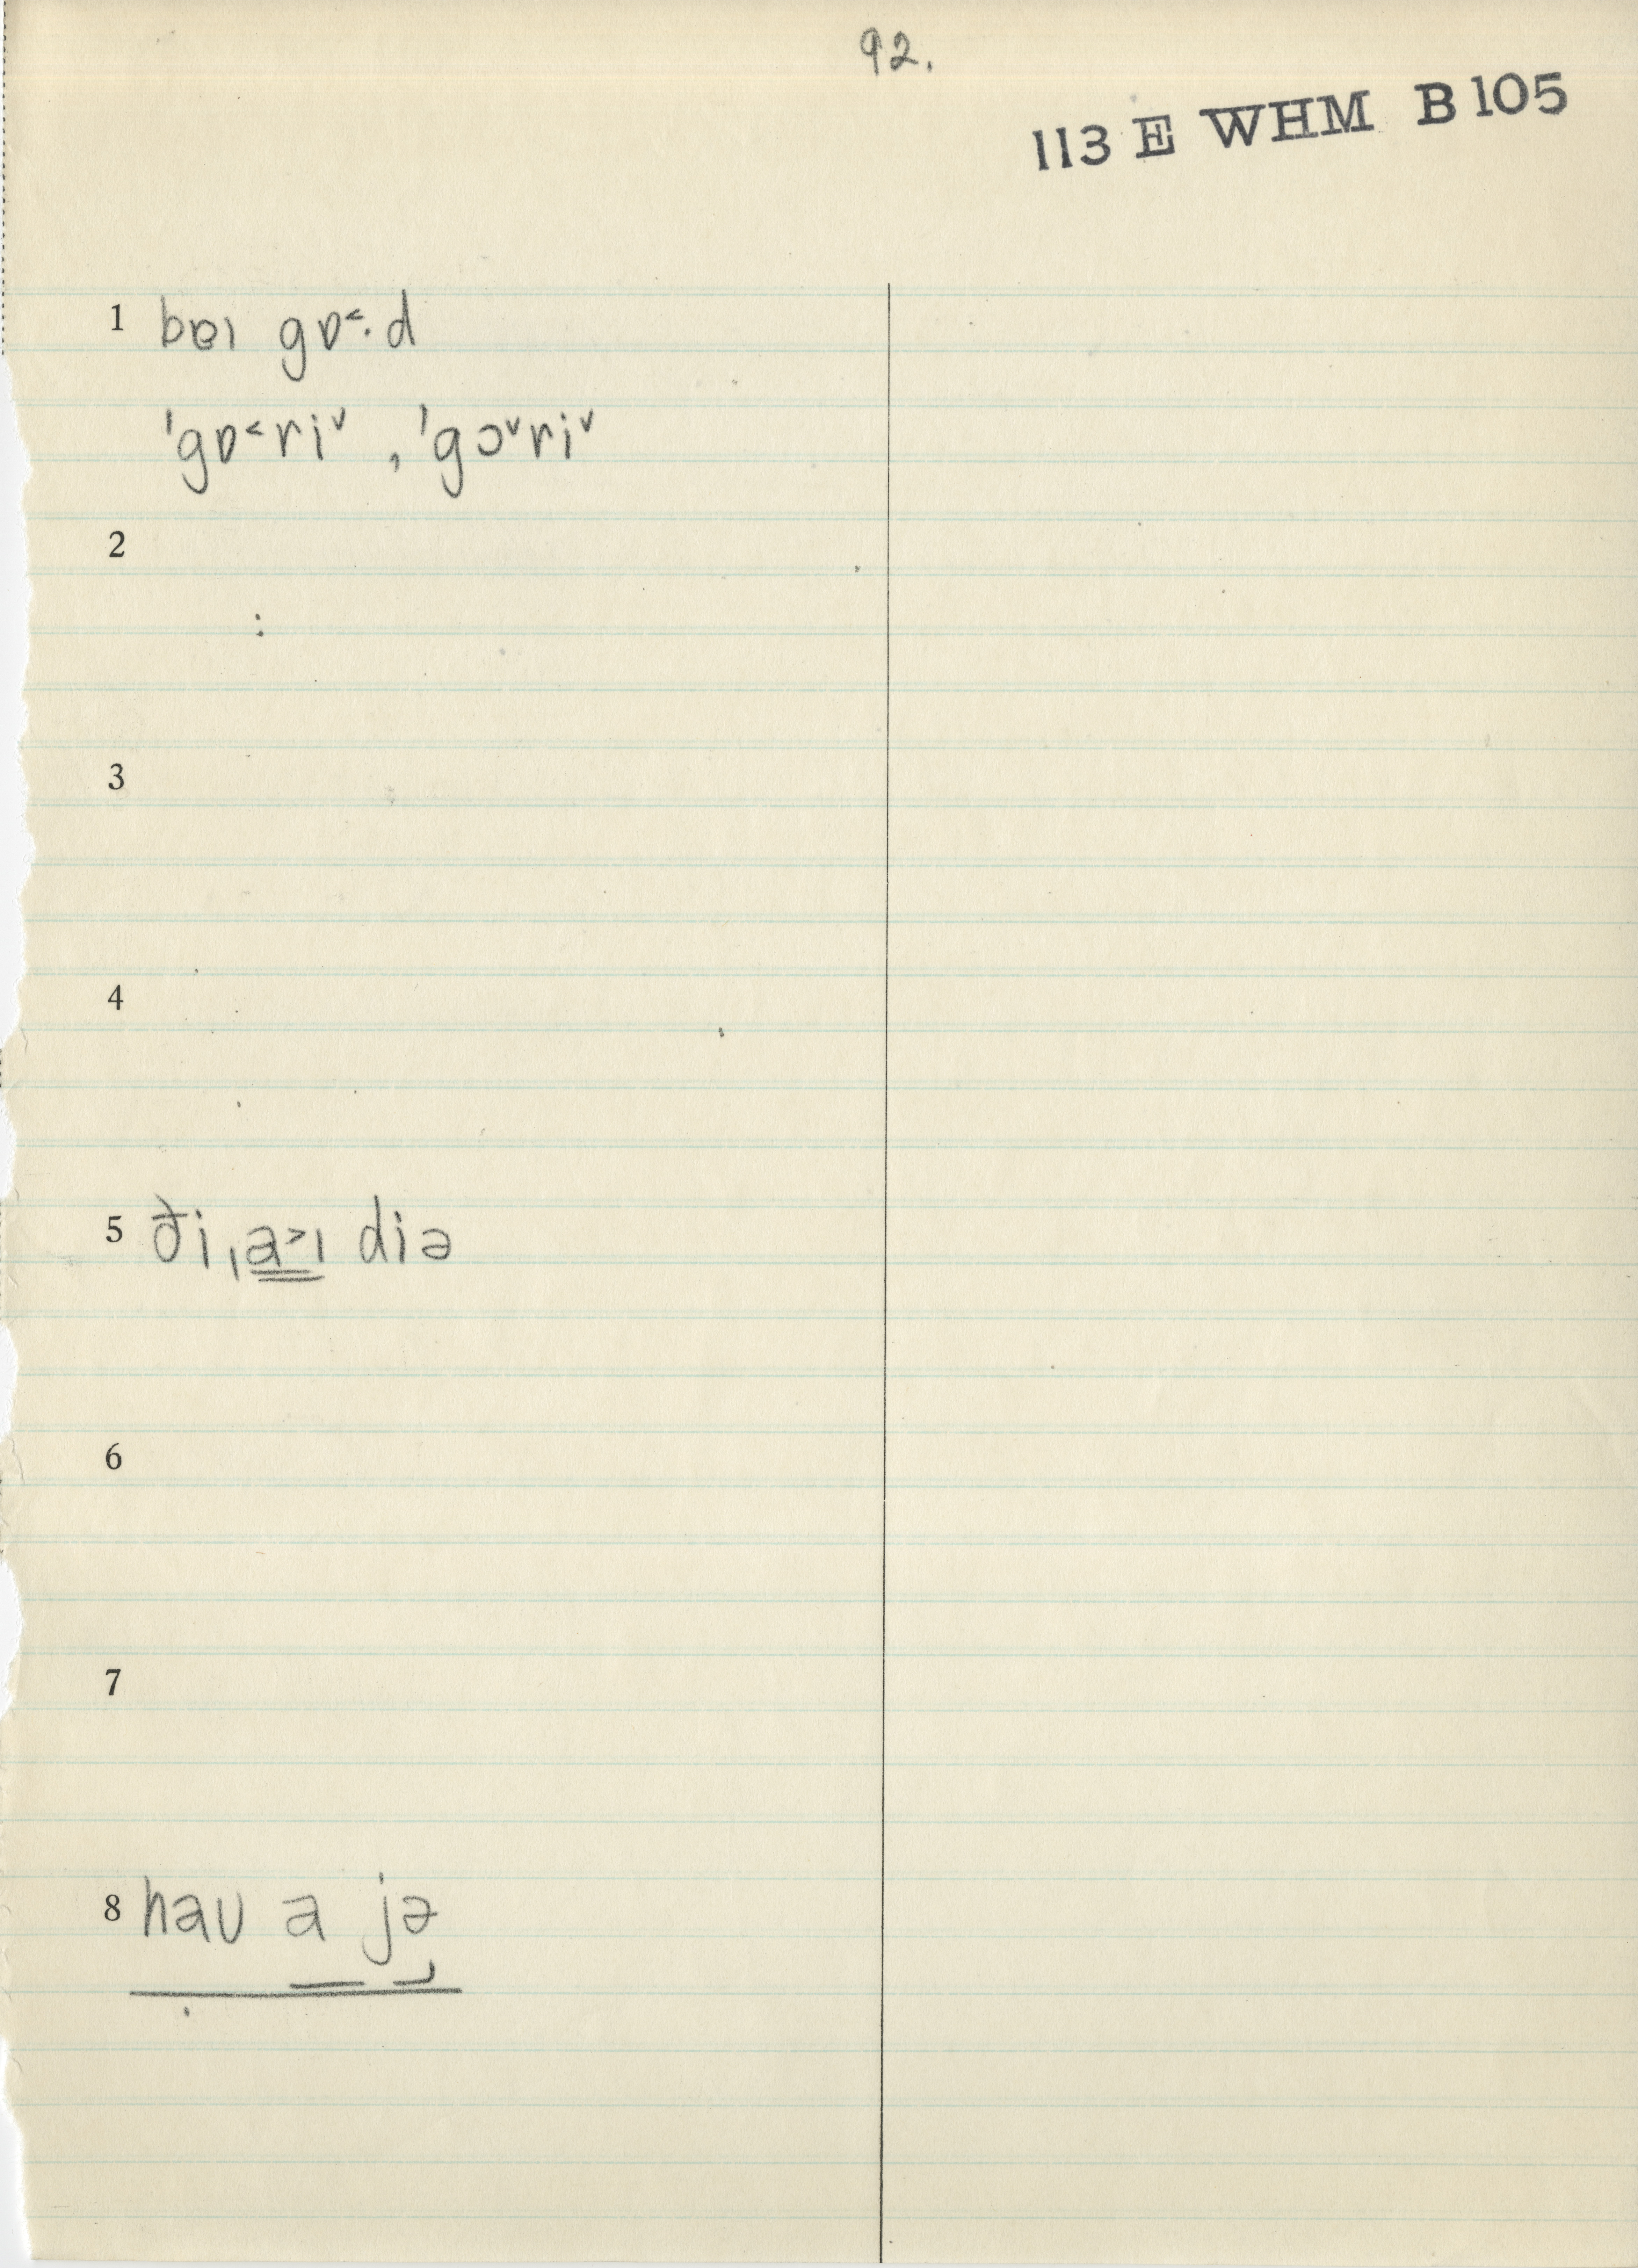 92.
113 E WHM B 105
1 bɐɪ gɒ˂·d
ˈgɒ˂riˇ , ˈgɔˇriˇ
2
3
4
5 ði ˌa˃ɪ diə
6
7
8 haʊ a jə